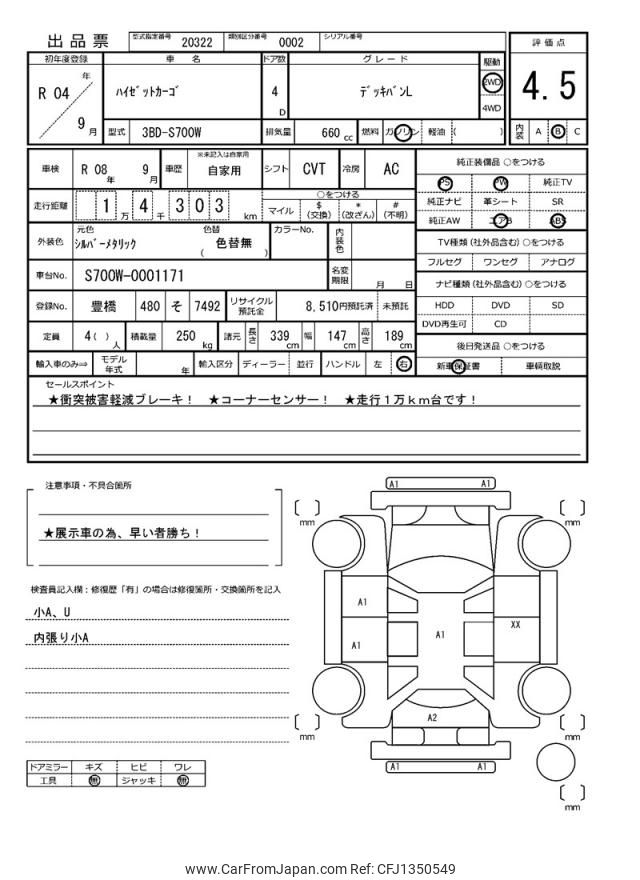 出品票
型式指定番号 20322 類別区分番号 0002 シリアル番号
初年度登録 車名 ドア数 グレード 駆動 評価点
R 04 年 9 月
ﾊｲｾﾞｯﾄｶｰｺﾞ 4 D ﾃﾞｯｷﾊﾞﾝL 2WD 4WD
4.5
型式 3BD-S700W 排気量 660 cc 燃料 ガソリン 軽油 ( ) 内装 A B C
車検 R 08 年 9 月 車歴 ※未記入は自家用 自家用 シフト CVT 冷房 AC
走行距離 1 万 4 千 3 0 3 km
○をつける
マイル $ (交換) * (改ざん) # (不明)
外装色 元色 ｼﾙﾊﾞｰﾒﾀﾘｯｸ 色替 ( 色替無 ) カラーNo. 内装色
車台No. S700W-0001171 名変期限 月 日
登録No. 豊橋 480 そ 7492 リサイクル預託金 8,510円預託済 未預託
定員 4( ) 人 積載量 250 kg 諸元 長さ 339 cm 幅 147 cm 高さ 189 cm
輸入車のみ⇒ モデル年式 年 輸入区分 ディーラー 並行 ハンドル 左 右
純正装備品 ○をつける
PS PW 純正TV
純正ナビ 革シート SR
純正AW エアB ABS
TV種類 (社外品含む) ○をつける
フルセグ ワンセグ アナログ
ナビ種類 (社外品含む) ○をつける
HDD DVD SD
DVD再生可 CD
後日発送品 ○をつける
新車保証書 車輌取説
セールスポイント
★衝突被害軽減ブレーキ！ ★コーナーセンサー！ ★走行１万ｋｍ台です！
注意事項・不具合箇所
★展示車の為、早い者勝ち！
検査員記入欄：修復歴「有」の場合は修復箇所・交換箇所を記入
小A、U
内張り小A
ドアミラー キズ ヒビ ワレ
工具 無 ジャッキ 無
A1 A1
mm mm
A1
XX
A1 A1
A2
mm mm
A1 A1
mm
www.CarFromJapan.com Ref: CFJ1350549